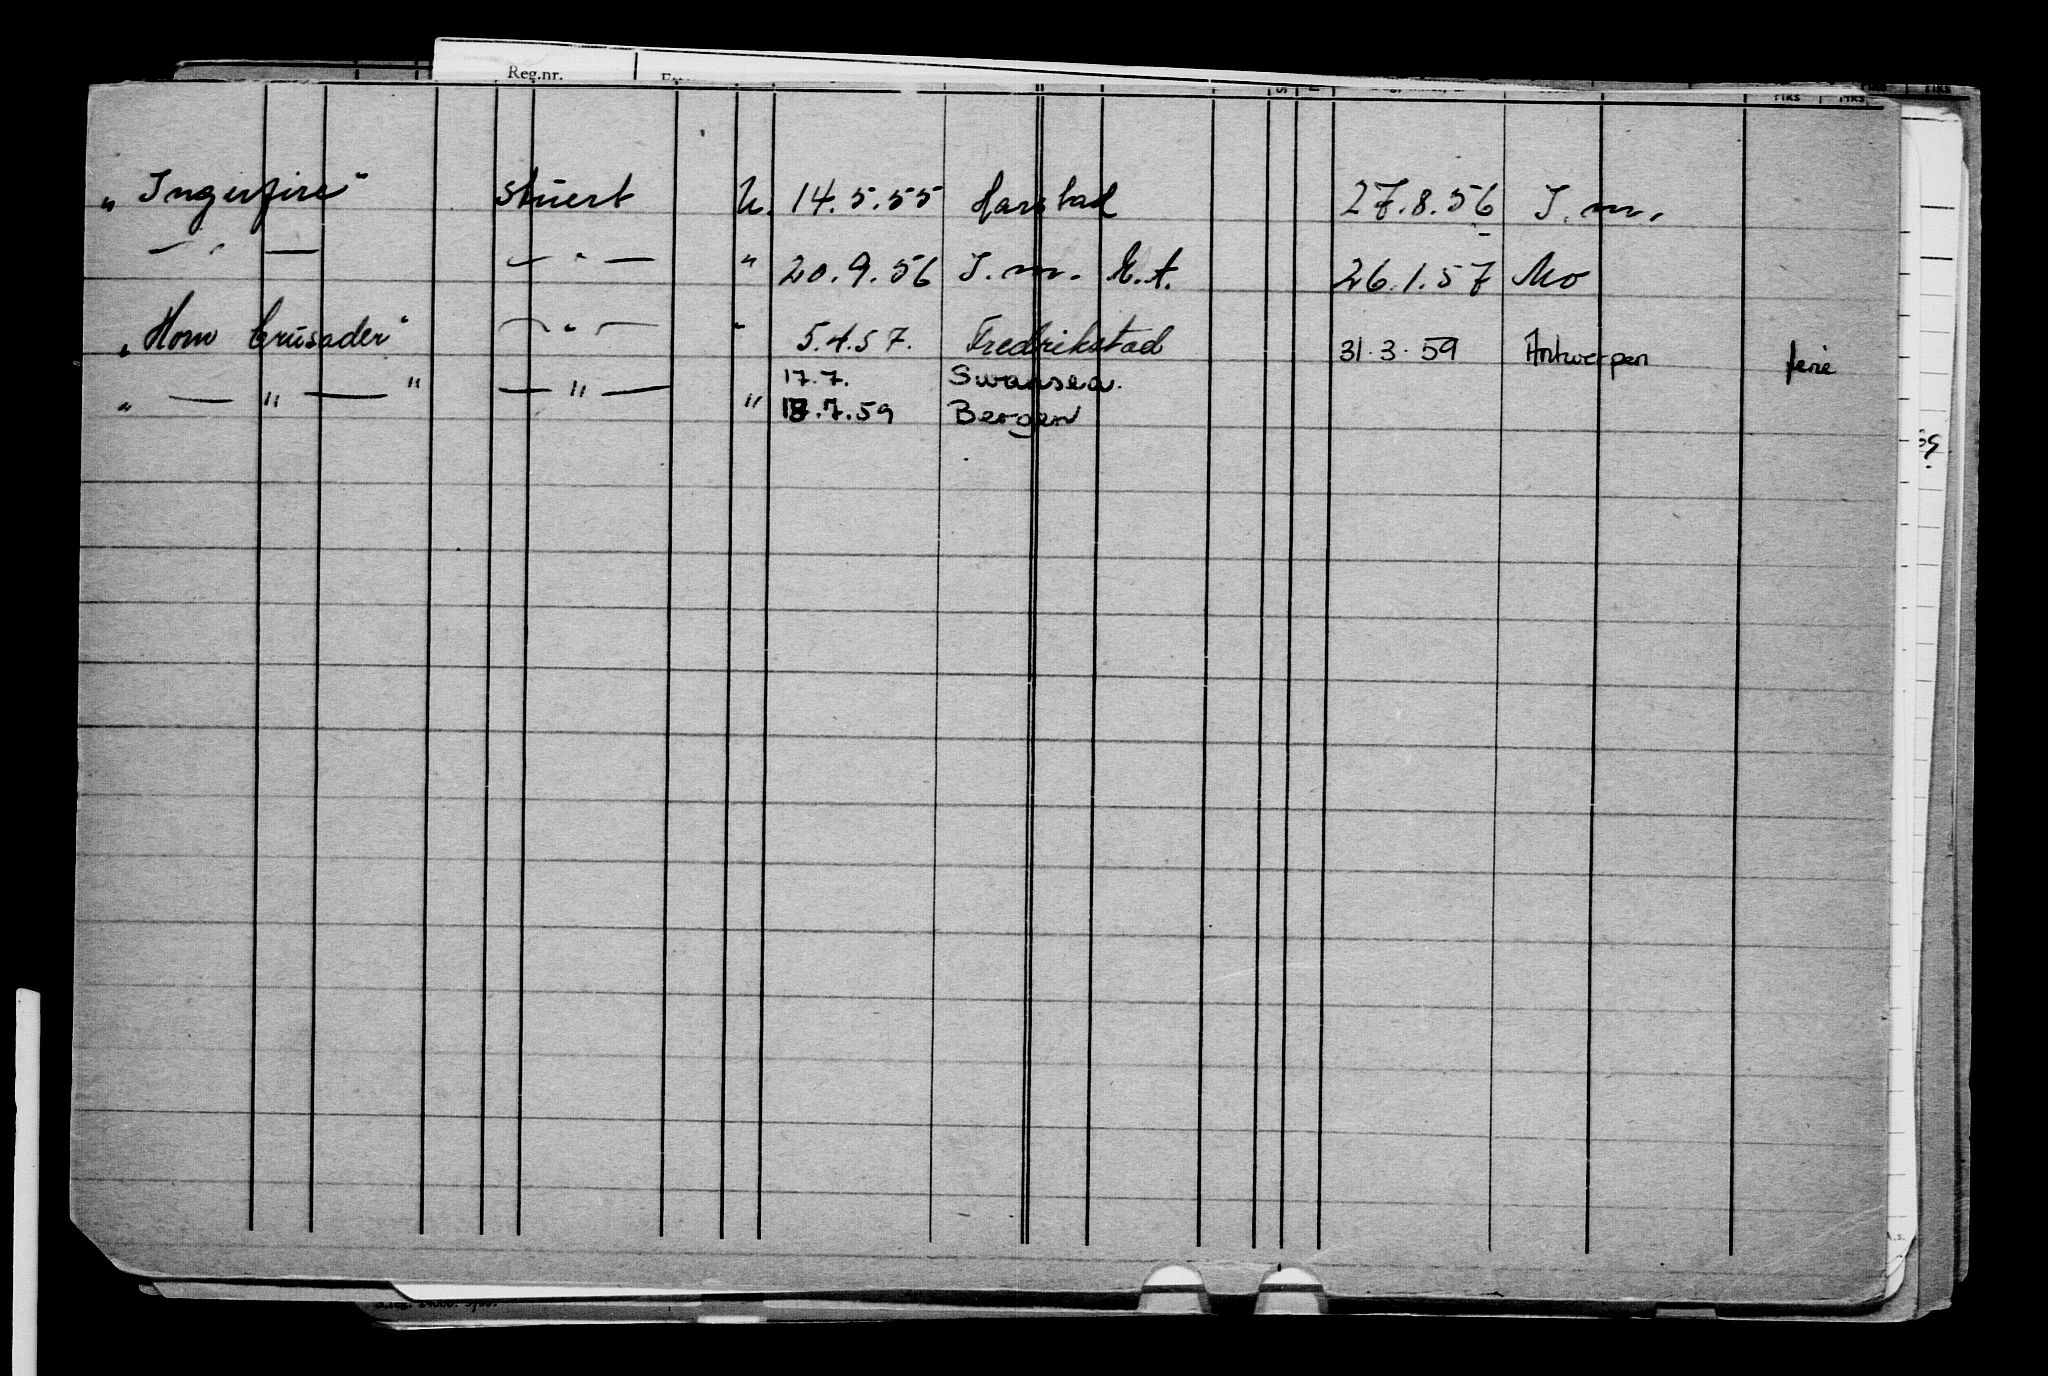 Reg.nr.
„Ingerfire" stuert U. 14.5.55 Harstad 27.8.56 I.m.
— " — — " — " 20.9.56 I.m. E.A. 26.1.57 Mo
„Horn Crusader" — " — " 5.4.57. Fredrikstad 31.3.59 Antwerpen ferie
17.7. Swansea.
„ — " — " — " — " 18.7.59 Bergen